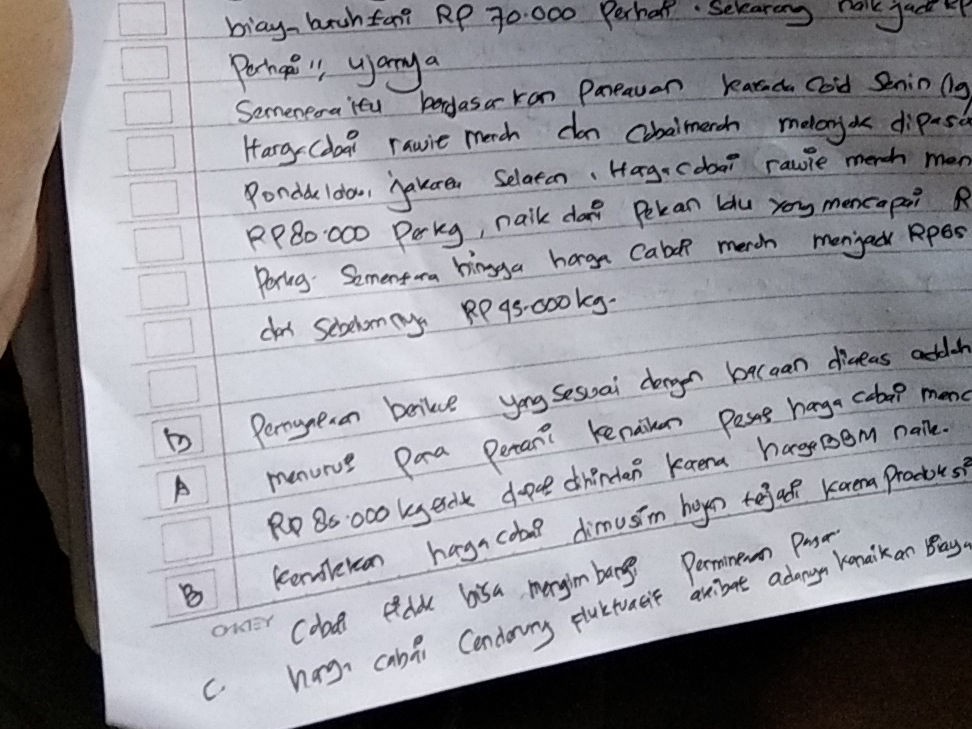 biaya buruh tani RP 70.000 Perhari. Sekarang naik jadi RP
Perhari", ujarnya
Sementara itu berdasarkan Pantauan Senin (19
Harga Cabai rawit merah dan Cabai merah melonjak dipasa
Pondok labu, jakarta Selatan. Harga Cabai rawit merah men
RP80.000 Perkg, naik dari Pekan lalu yang mencapai R
Perkg. Sementara hingga harga Cabai merah menjadi RP65
dari Sebelumnya RP45.000kg.
Pernyataan berikut yang sesuai dengan bacaan diatas adalah
A menurut Para Petani kenaikan Pesat harga cabai menc
RP 80.000 kg tidak dapat dihindari karena harga BBM naik.
B kenaikan harga cabai dimusim hujan terjadi karena Produksi
Cabai tidak bisa mengimbangi Permintaan Pasar
OKEY
C. harga cabai Cenderung Fluktuatif akibat adanya kenaikan Biaya